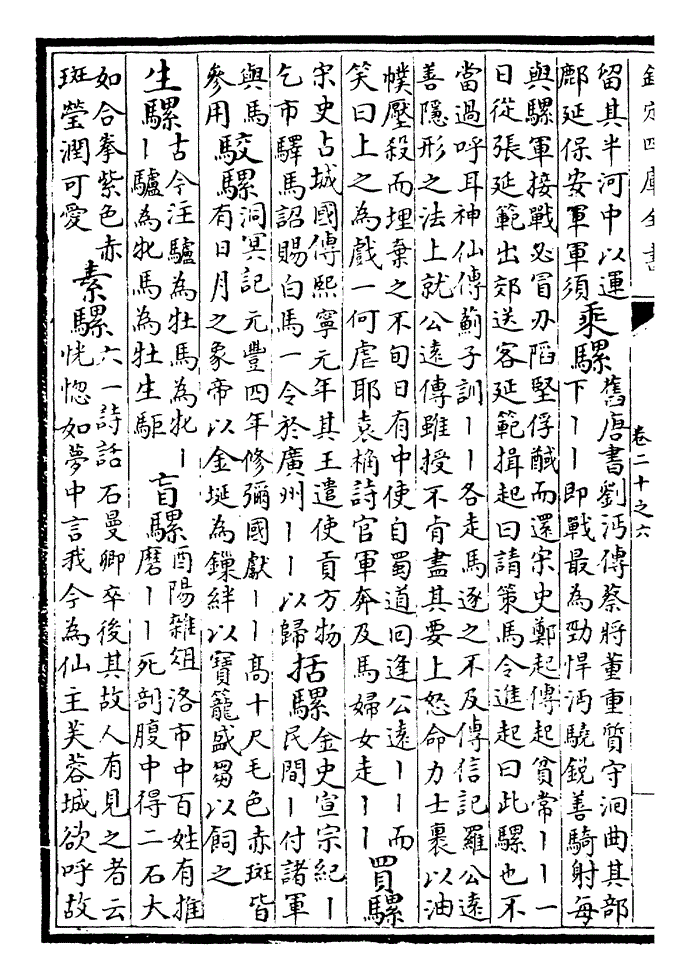 欽定四庫全書
卷二十之六
留其半河中以運
鄜延保安軍軍須
乘騾
舊唐書劉沔傳蔡將董重質守洄曲其部
下丨丨即戰最為勁悍沔驍鋭善騎射每
與騾軍接戰必冒刃陷堅俘馘而還宋史鄭起傳起貧常丨丨一
日從張延範出郊送客延範揖起曰請策馬令進起曰此騾也不
當過呼耳神仙傳薊子訓丨丨各走馬逐之不及傳信記羅公遠
善隱形之法上就公遠傳雖授不肯盡其要上怒命力士裹以油
幞壓殺而埋棄之不旬日有中使自蜀道回逢公遠丨丨而
笑曰上之為戲一何虐耶袁桷詩官軍奔及馬婦女走丨丨
買騾
宋史占城國傳熙寧元年其王遣使貢方物
乞市驛馬詔賜白馬一令於廣州丨丨以歸
括騾
金史宣宗紀丨
民間丨付諸軍
與馬
參用
駮騾
洞冥記元豐四年修彌國獻丨丨高十尺毛色赤斑皆
有日月之象帝以金埏為鏁絆以寶籠盛芻以飼之
生騾
古今注驢為牡馬為牝丨
丨驢為牝馬為牡生駏
盲騾
酉陽雜俎洛市中百姓有推
磨丨丨死剖腹中得二石大
如合拳紫色赤
斑瑩潤可愛
素騾
六一詩話石曼卿卒後其故人有見之者云
恍惚如夢中言我今為仙主芙蓉城欲呼故